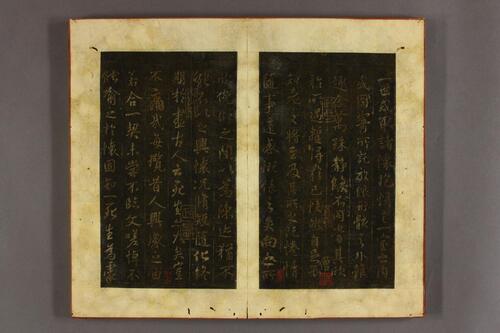 一世或取諸懷抱悟言一室之內
或因寄所託放浪形骸之外雖
趣舍萬殊靜躁不同當其欣
於所遇暫得於己快然自足不
知老之將至及其所之既惓情
隨事遷感慨係之矣向之所
欣俛仰之間以為陳迹猶不
能不以之興懷況脩短隨化終
期於盡古人云死生亦大矣豈
不痛哉每攬昔人興感之由
若合一契未嘗不臨文嗟悼不
能喻之於懷固知一死生為虛